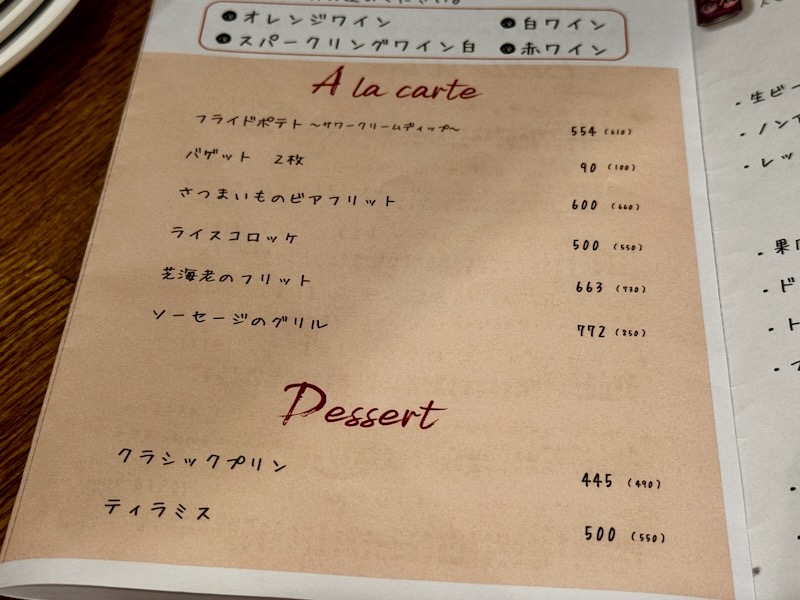 オレンジワイン 白ワイン
スパークリングワイン白 赤ワイン
A la carte
フライドポテト ～サワークリームディップ～ 554 (610)
バゲット 2枚 90 (100)
さつまいものビアフリット 600 (660)
ライスコロッケ 500 (550)
芝海老のフリット 663 (730)
ソーセージのグリル 772 (850)
Dessert
クラシックプリン 445 (490)
ティラミス 500 (550)
・生ビー
・ノンア
・レッ
・果
・ド
・ト